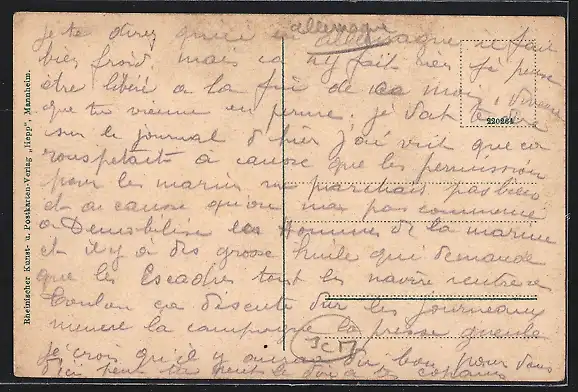 allemagne
je te direz qu'ici en allemagne il fait
bien froid mais ca n'y fait rien je pense
être libéré a la fin de ca moi,
que tu vienne en perme. je
sur le journal d'hier j'ai vuit que ca
rouspetait a cause que les permission
pour les marin ne marchais pas bien
et a cause qu'on nas pas commencé
a Demobiliser les Hommes de la marine
et il y a des grosse huile qui demande
que les Escadres tout les navire rentrere a
Toulon ca discute sur les journeaux
mener la campagne la presse gueule
je crois qu'il y aura du bon pour vous
les copains
Rheinischer Kunst- u. Postkarten-Verlag „Hepp", Mannheim.
220264